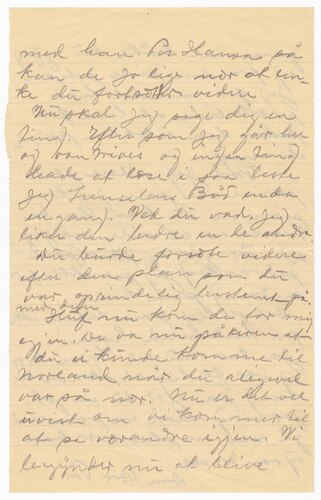 med han Per Hansa på
kan de jo lige nør at tin-
ke du fortsætter videre
Nu skal jeg sige dig en
ting. Efter som jeg går her
og van trives og ingen ting
hade at lese i saa leste
jeg Lenselens Båd enda
en gang. Ved du vad, jeg
liker den bedre en de andre.
Du burde forsøte videre
efter den plan som du
var oprindelig bestemt på.
med dem
Huf nu kom de for mig
igjen. De va nu påkiren at
du vi kunde komme til
Norland når du alligevel
var på nor. Nu er det vel
uvist om vi kommer til
at se vorandre igjen. Vi
begynder nu at blive